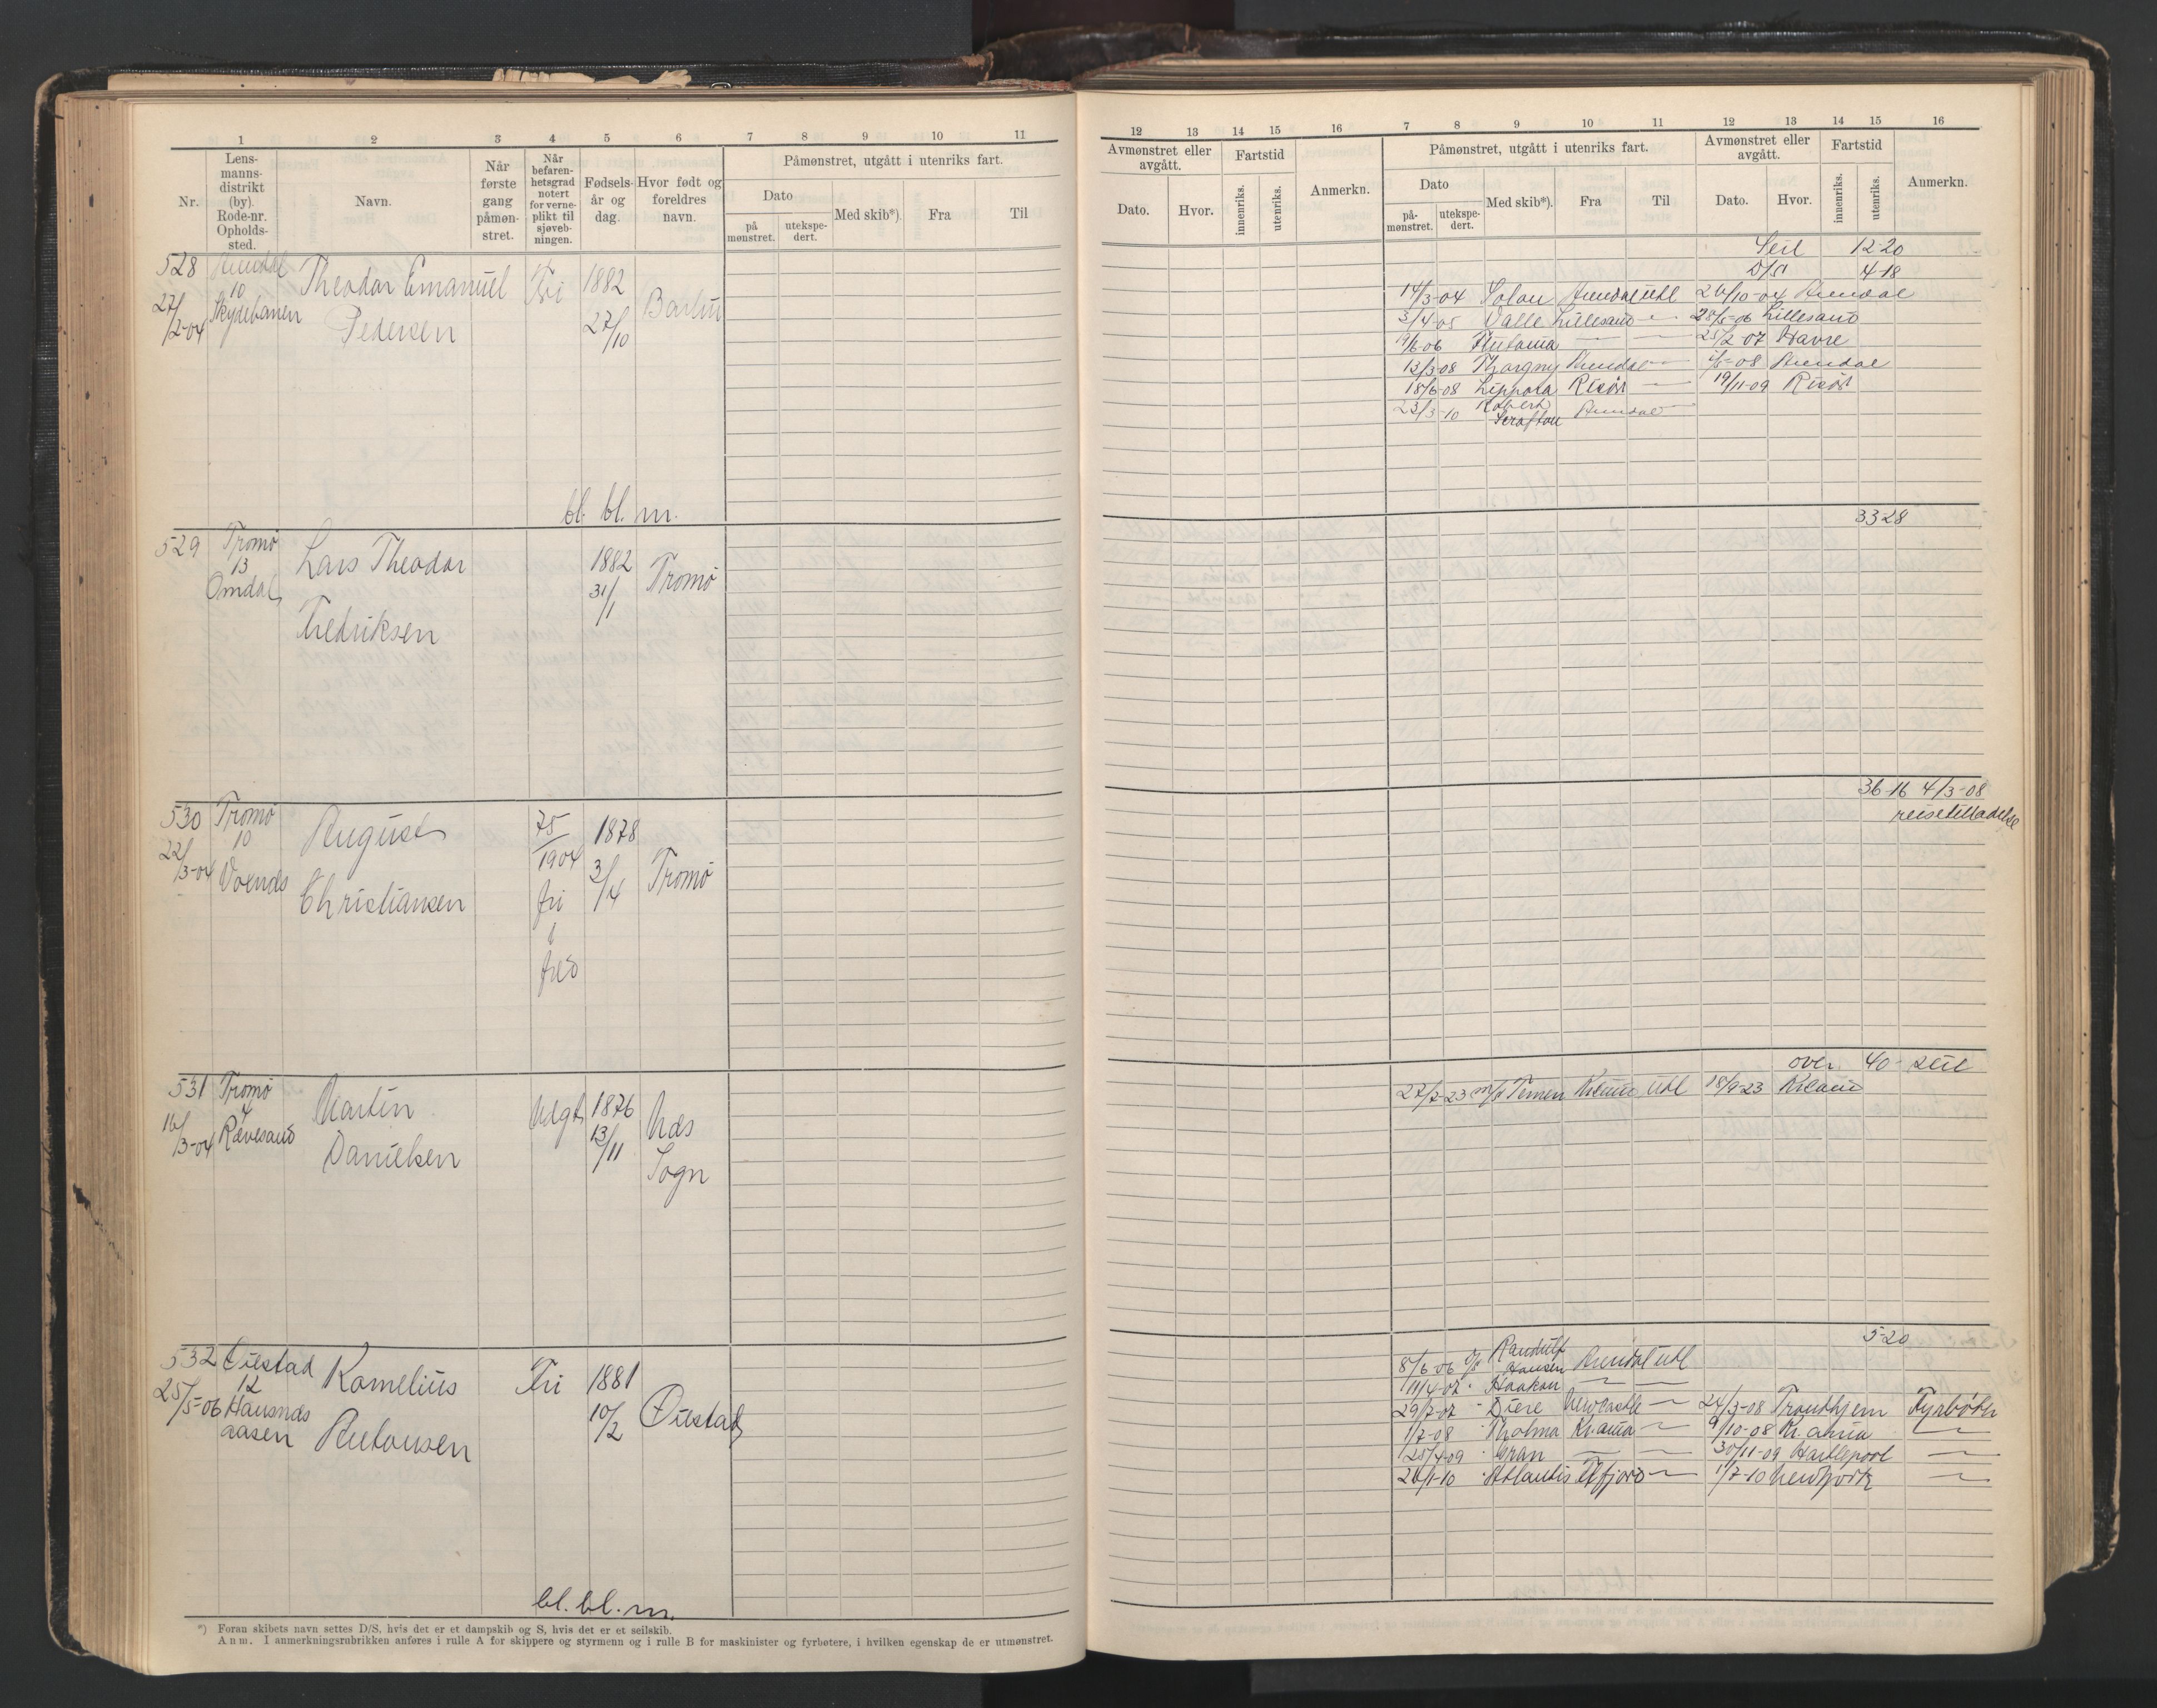 1 2 3 4 5 6 7 8 9 10 11
Nr.
Lens-
manns-
distrikt
(by).
Rode-nr.
Opholds-
sted.
Navn.
Når
første
gang
påmøn-
stret.
Når
befaren-
hetsgrad
notert
for verne-
plikt til
sjøveb-
ningen.
Fødsels-
år og
dag.
Hvor født og
foreldres
navn.
Påmønstret, utgått i utenriks fart.
Dato
på
mønstret.
utekspe-
dert.
Med skib*).
Fra
Til
528 Arendal
10
27/2-04 Skydebanen
Theodor Emanuel
Pedersen
Fri
1882
27/10
Barbu
bl. bl. m.
529 Tromø
13
Omdal
Lars Theodor
Fredriksen
1882
31/1
Tromø
530 Tromø
10
22/3-04
August
Christiansen
75/1904
fri
i
fred
1878
3/4
Tromø
531 Tromø
4
16/3-04 Rævesand
Martin
Danielsen
Udygt
1876
13/11
Næs
Sogn
532 Øiestad
12
25/5-06 Hausnds
aasen
Kornelius
Antonsen
Fri
1881
10/2
Øiestad
bl. bl. m.
*) Foran skibets navn settes D/S, hvis det er et dampskib og S, hvis det er et seilskib.
Anm. I anmerkningsrubrikken anføres i rulle A for skippere og styrmenn og i rulle B for maskinister og fyrbøtere, i hvilken egenskap de er utmønstret.
12 13 14 15 16 7 8 9 10 11 12 13 14 15 16
Avmønstret eller
avgått.
Dato.
Hvor.
Fartstid
innenriks.
utenriks.
Anmerkn.
Påmønstret, utgått i utenriks fart.
Dato
på-
mønstret.
utekspe-
dert.
Med skib*).
Fra
Til
Avmønstret eller
avgått.
Dato.
Hvor.
Fartstid
innenriks.
utenriks.
Anmerkn.
Seil 12-20
D/S 4-18
14/3-04 Solon Arendal utl 26/10-04 Arendal
3/4-05 Valle Lillesand — 28/5-06 Lillesand
1/6-06 — — 25/2-07 Havre
13/3-08 Thorgny Arendal — /5-08 Arendal
18/6-08 Lippora Risør — 19/11-09 Risør
23/3-10 Robert
Scrafton Arendal
33-28
36-16 4/3-08
reisetilladelse
over 40- seil
27/7-23 m/s Ternen Kr.sand utl 18/9-23 Kr.sand
5-20
8/6-06 D/S Randulf
Hansen Arendal utl
11/4-07 " Haakon — —
29/7-07 " Diere Newcastle — 24/3-08 Trondhjem Fyrbøter
1/7-08 " Tholma Kr.ania — 9/10-08 Kr.ania —
25/4-09 " Gran — — 30/11-09 Hartlepool —
26/1-10 " Atlantis — 1/7-10 Newport —